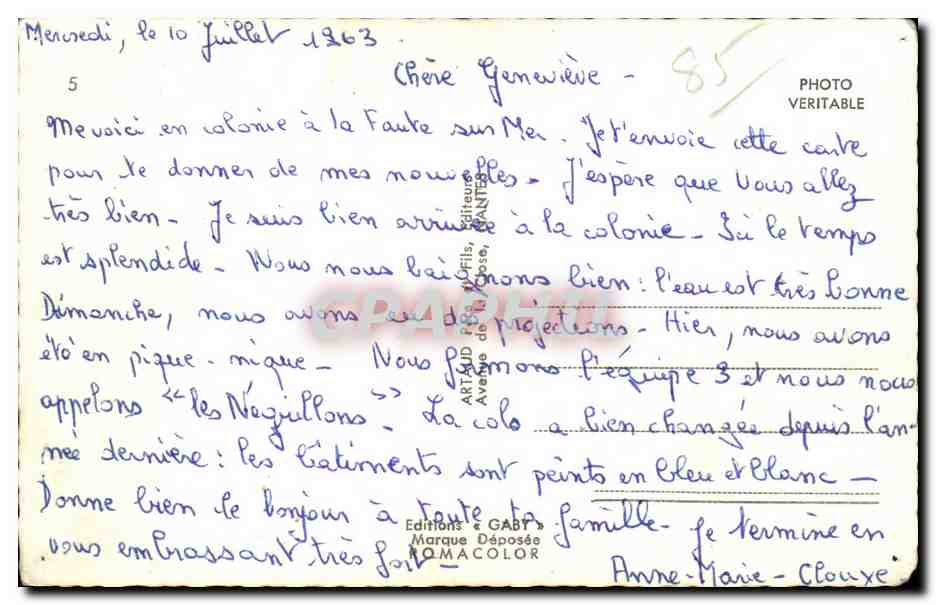 Mercredi, le 10 Juillet 1963.
Chère Geneviève -
85
5
PHOTO
VERITABLE
Me voici en colonie à la Faute sur Mer. Je t'envoie cette carte
pour te donner de mes nouvelles - J'espère que vous allez
très bien - Je suis bien arrivée à la colonie - Ici le temps
est splendide - Nous nous baignons bien : l'eau est très bonne
Dimanche, nous avons eu des projections - Hier, nous avons
été en pique-nique - Nous formons l'équipe 3 et nous nous
appelons "les Négrillons" - La colo a bien changée depuis l'an-
née dernière : les bâtiments sont peints en bleu et blanc -
Donne bien le bonjour à toute ta famille - Je termine en
vous embrassant très fort -
Anne-Marie - Clouxe
ARTAUD Père et Fils, Editeurs
Avenue de la Close, NANTES
Editions « GABY »
Marque Déposée
ROMACOLOR
CPAPHIL